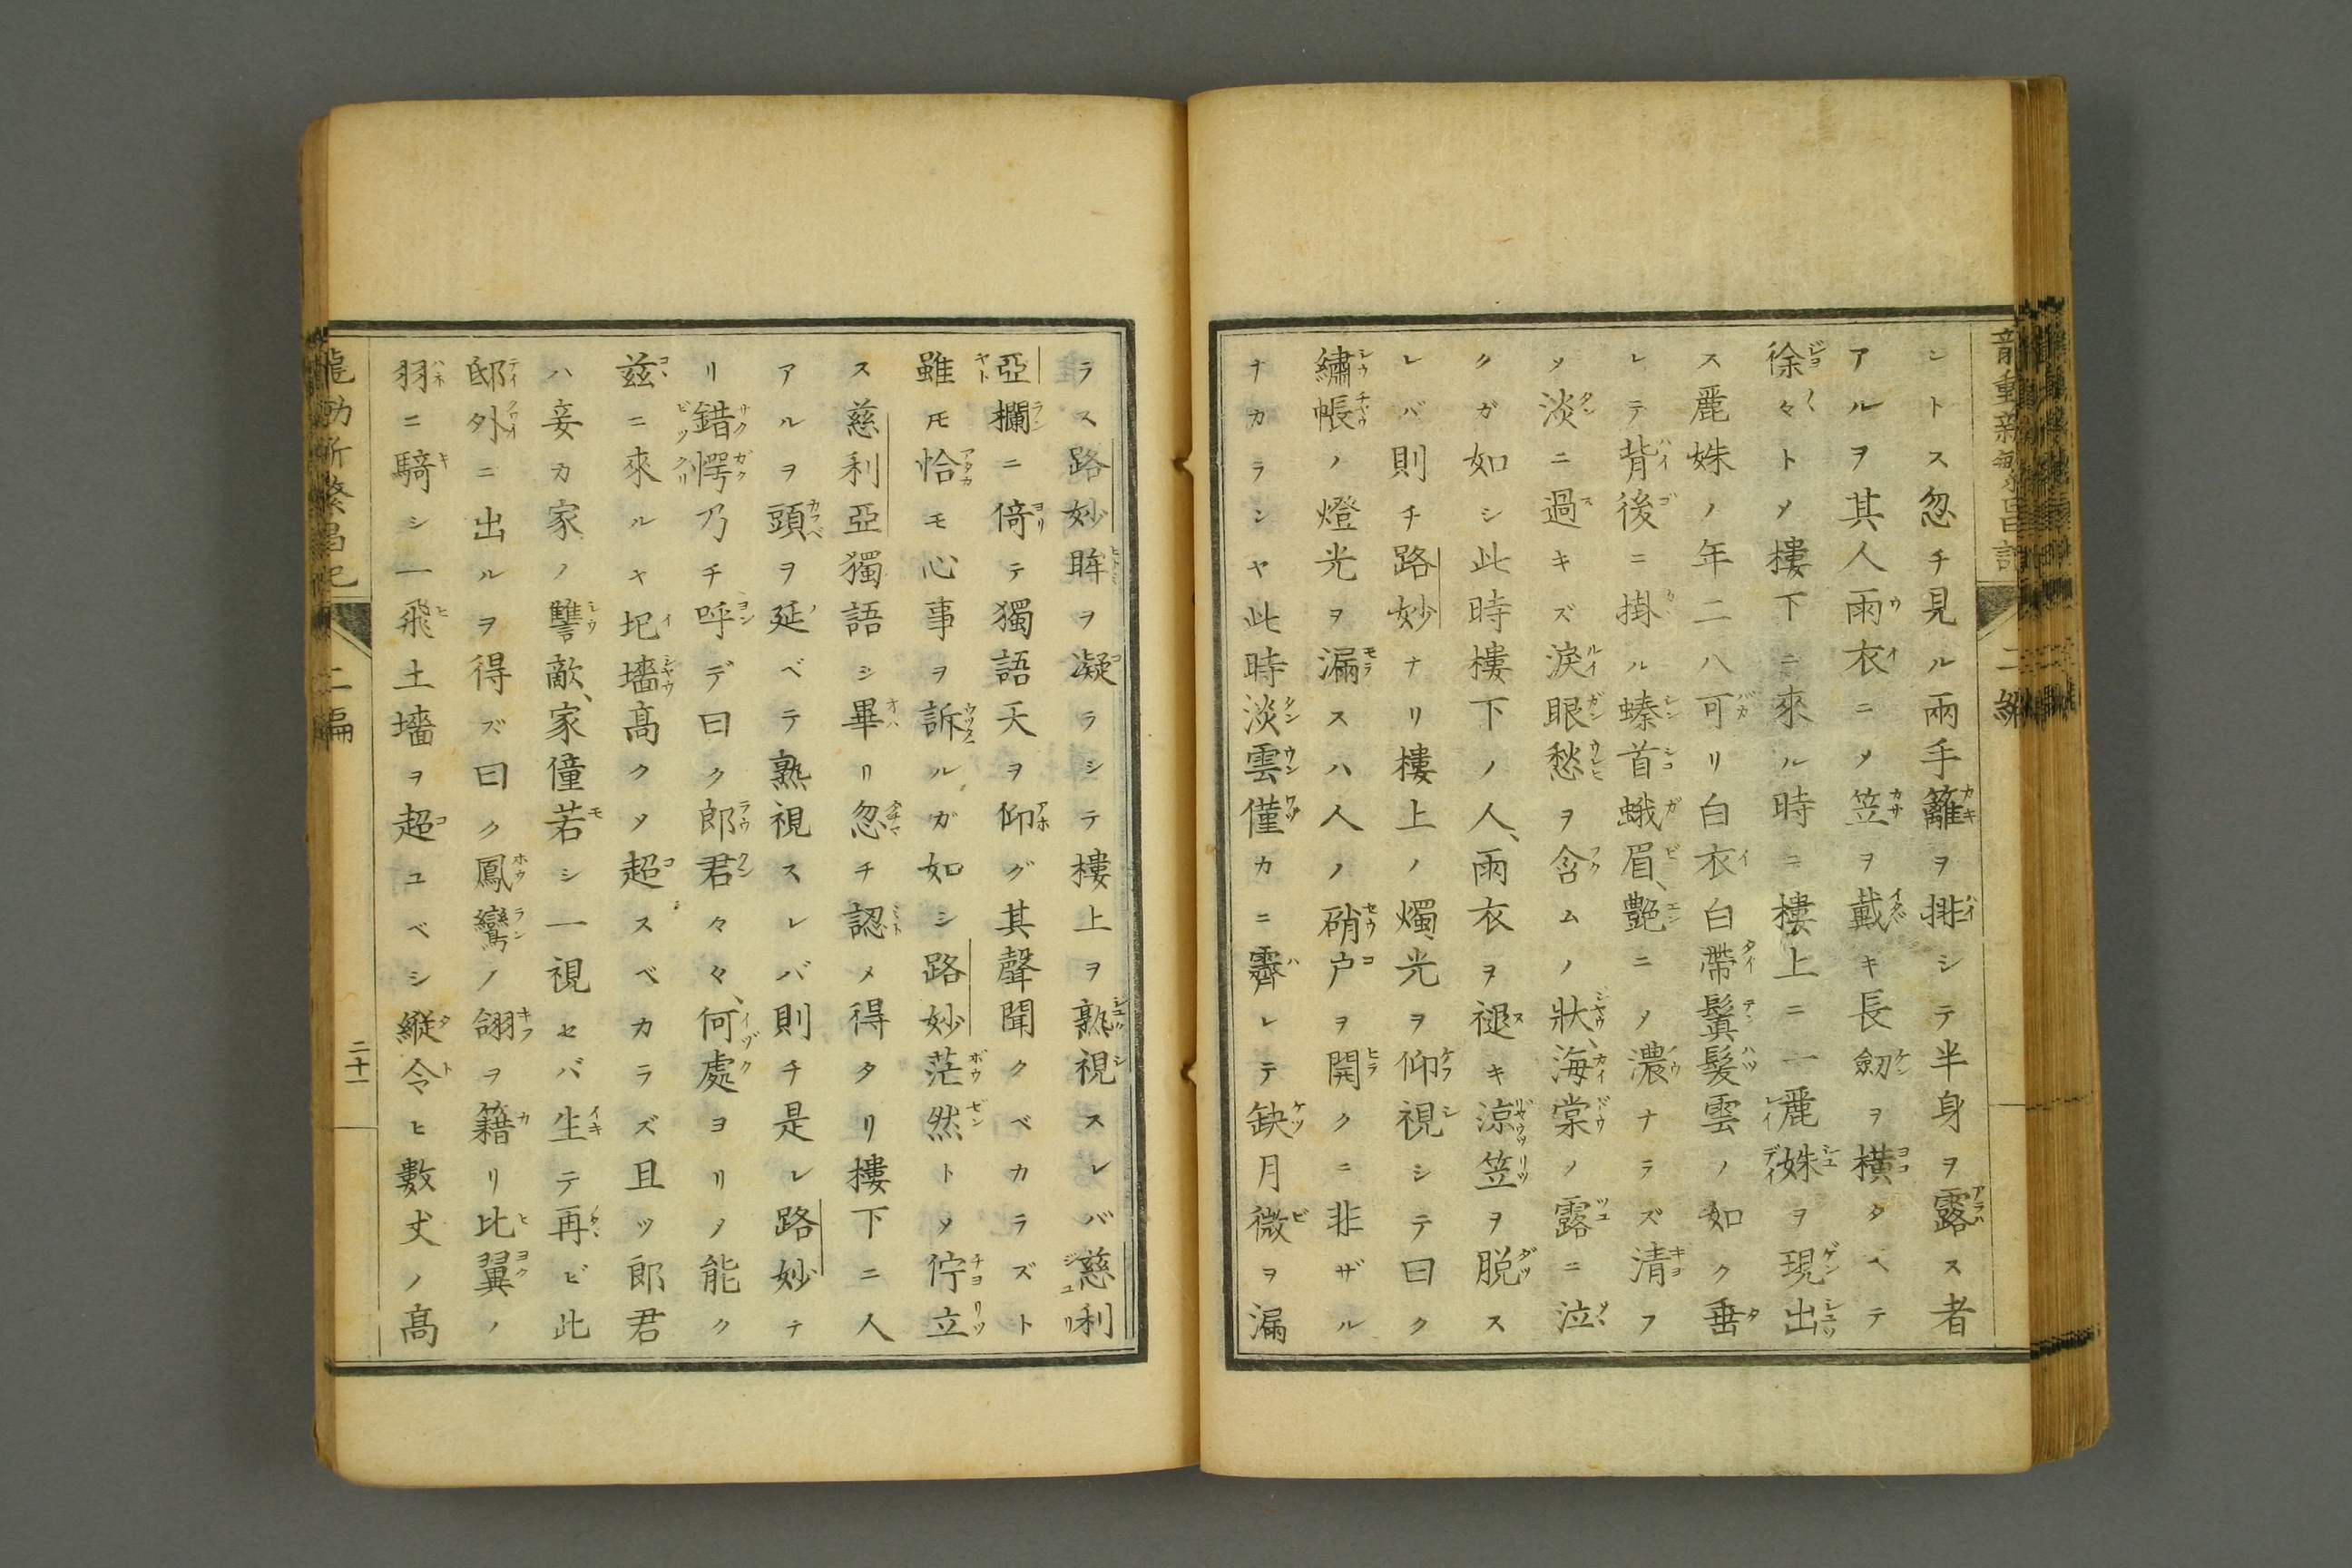 シトス忽チ見ル兩手籬ヲ排シテ半身ヲ露ス者
アルヲ其人雨衣ニメ笠ヲ戴キ長劒ヲ橫タヘテ
徐々トメ樓下ニ來ル時ニ樓上ニ一麗姝ヲ現出
ス麗姝ノ年二八可リ白衣白帶鬒髮雲ノ如ク垂
レテ背後ニ掛ル螓首蛾眉、艷ニメ濃ナラズ清フ
メ淡ニ過キズ淚眼愁ヲ含ムノ狀、海棠ノ露ニ泣
クガ如シ此時樓下ノ人、雨衣ヲ褪キ涼笠ヲ脱ス
レバ則チ路妙ナリ樓上ノ燭光ヲ仰視シテ曰ク
繡帳ノ燈光ヲ漏スハ人ノ硝户ヲ開クニ非ザル
ナカランヤ此時淡雲僅カニ霽レテ缺月微ヲ漏
ラス路妙眸ヲ凝ラシテ樓上ヲ熟視スレバ慈利
亞欄ニ倚テ獨語天ヲ仰グ其聲聞クベカラズト
雖モ恰モ心事ヲ訴ルガ如シ路妙茫然トメ佇立
ス慈利亞獨語シ畢リ忽チ認メ得タリ樓下ニ人
アルヲ頭ヲ延ベテ熟視スレバ則チ是レ路妙テ
リ錯愕乃チ呼デ曰ク郎君々々、何處ヨリノ能ク
茲ニ來ルヤ圯墻高クメ超スベカラズ且ツ郎君
ハ妾カ家ノ讐敵、家僮若シ一視セバ生テ再ビ此
邸外ニ出ルヲ得ズ曰ク鳳鸞ノ翎ヲ籍リ比翼ノ
羽ニ騎シ一飛土墻ヲ超ユベシ縱令ヒ數丈ノ高
二編
二十一